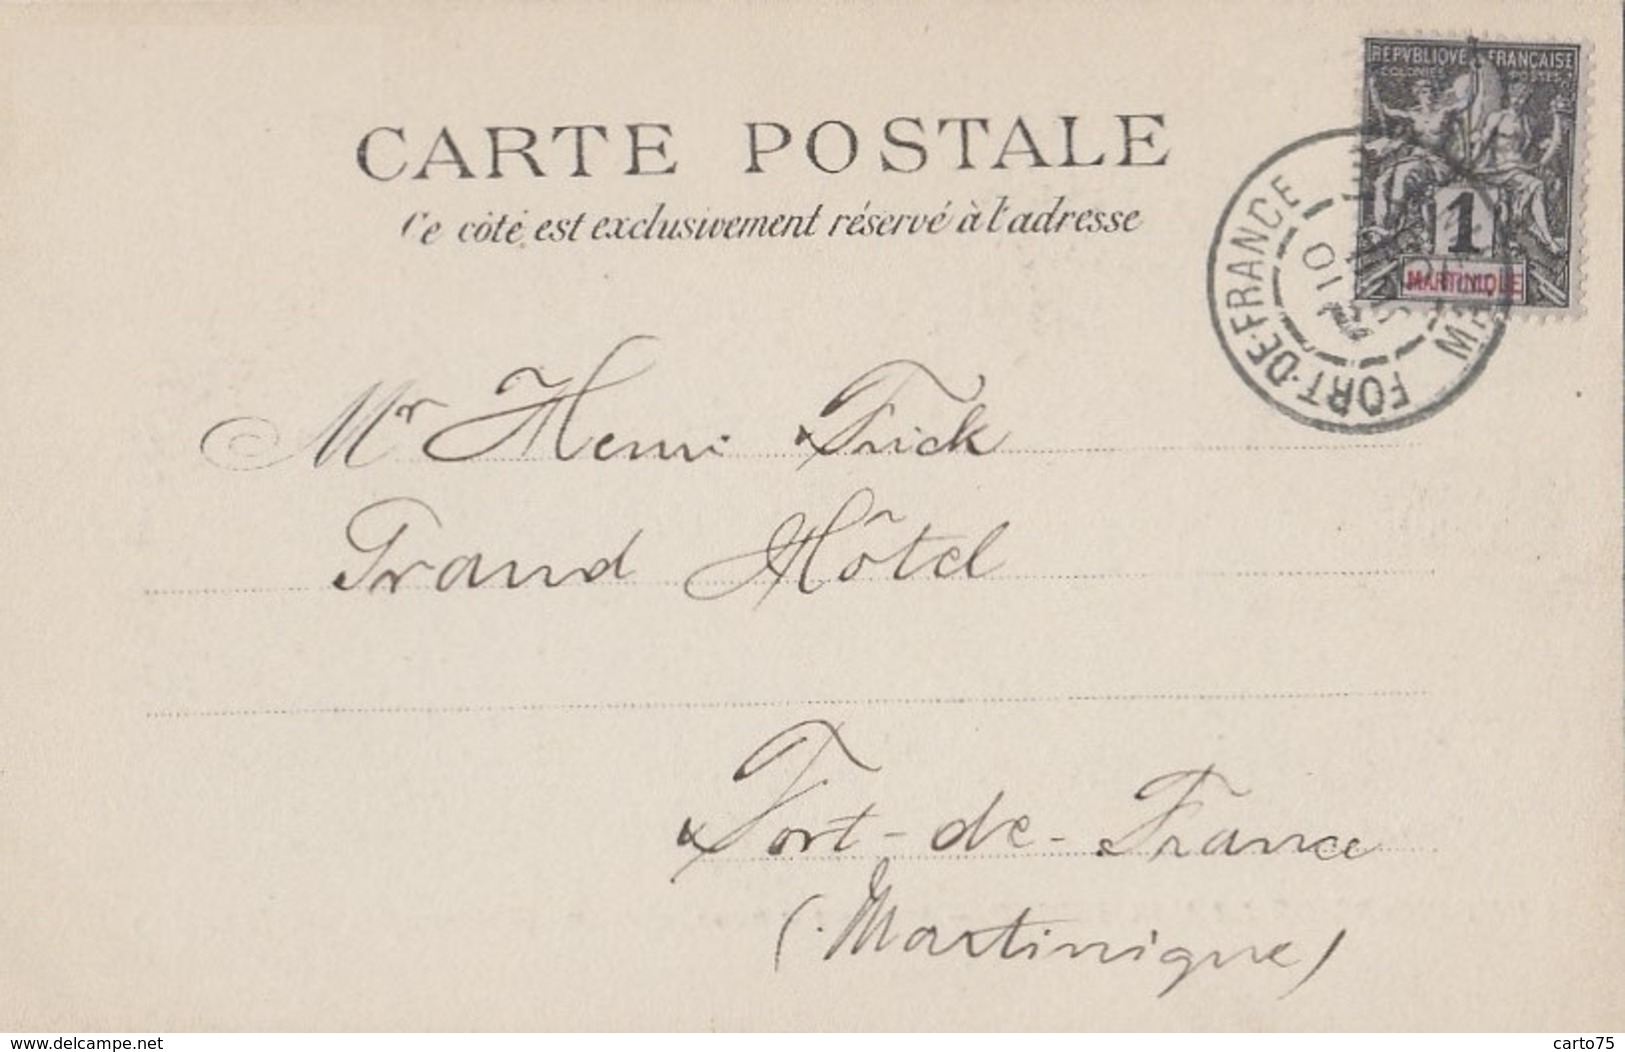 REPVBLIQVE FRANÇAISE
COLONIES POSTES
1
MARTINIQUE
FORT-DE-FRANCE
10
CARTE POSTALE
Ce côté est exclusivement réservé à l'adresse
Mr Henri Frick
Grand Hôtel
Fort-de-France
(Martinique)
www.delcampe.net
carto75